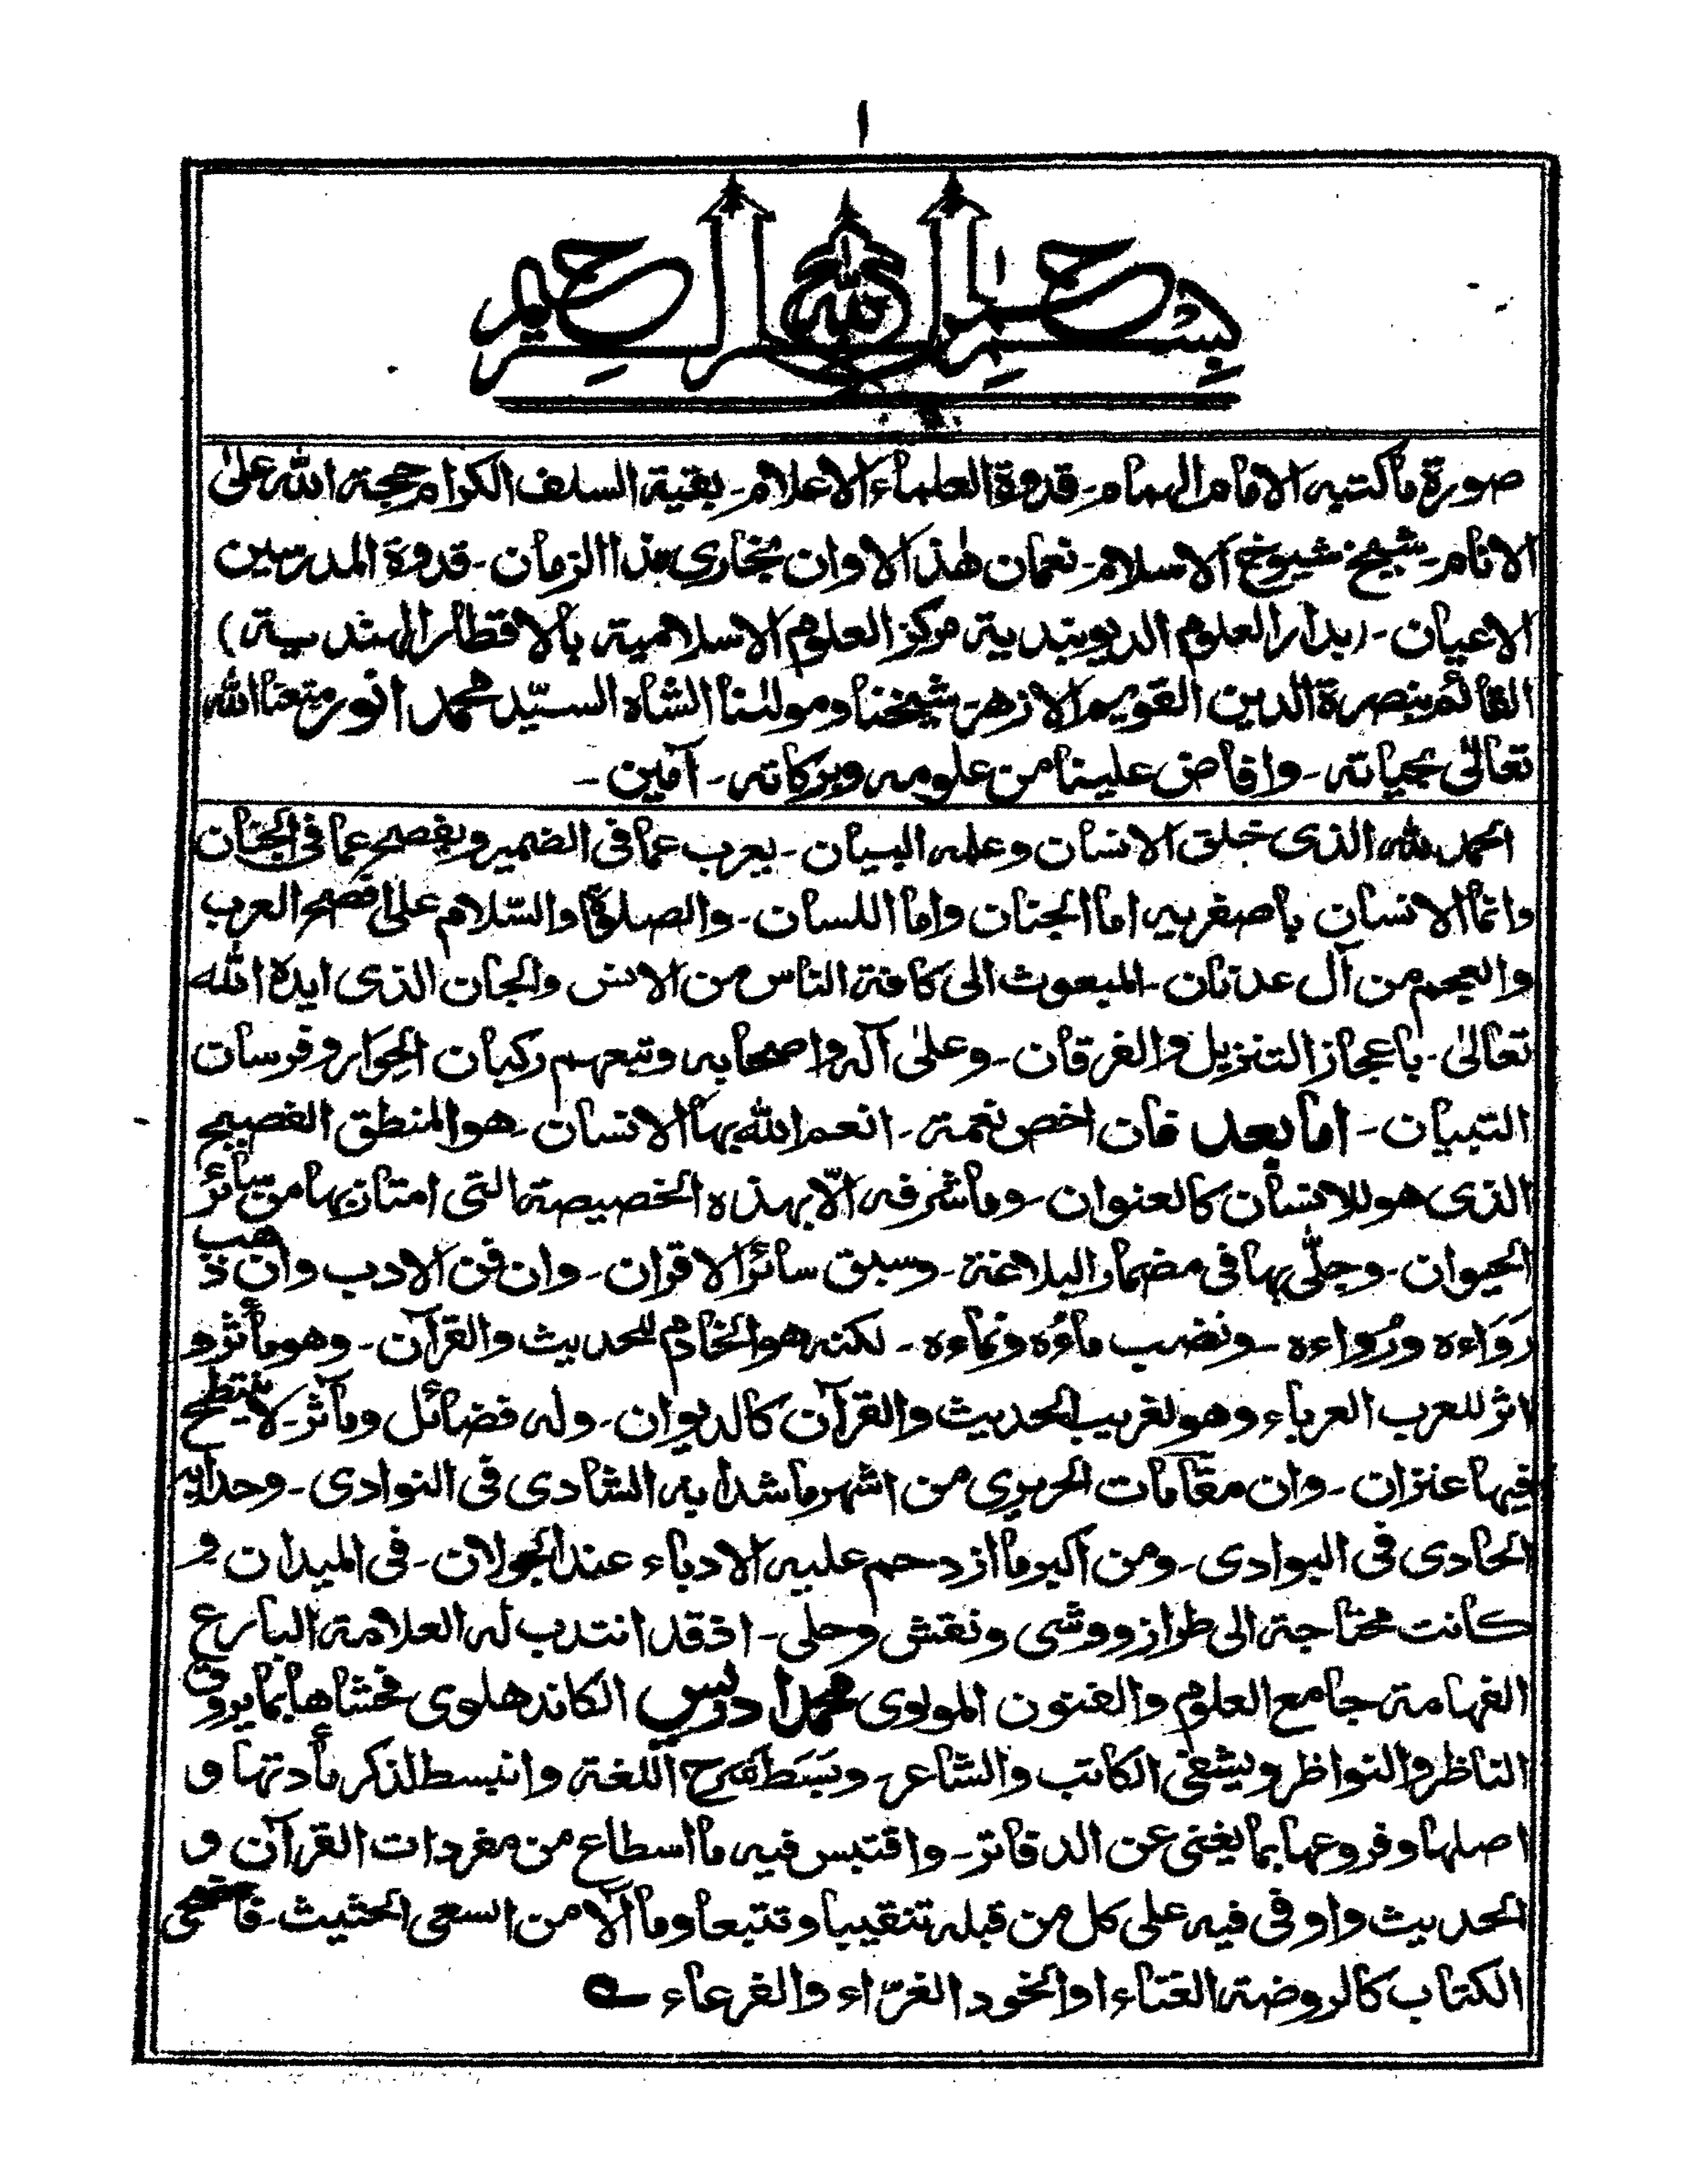 ١
بسم الله الرحمن الرحيم
صورة ماكتبه الامام الهمام۔ قدوة العلماء الاعلام۔ بقية السلف الكرام حجة الله على
الانام۔ شيخ شيوخ الاسلام۔ نعمان هٰذا الاوان بخاري هذا الزمان۔ قدوة المدرسين
الاعيان۔ (بدار العلوم الديوبندية مركز العلوم الاسلامية بالاقطار الهندية)
القائم بنصرة الدين القويم الازهر شيخنا ومولٰنا الشاه السيّد محمد انور متعنا الله
تعالٰى بحياته۔ وافاض علينا من علومه وبركاته۔ آمين۔
الحمد لله الذى خلق الانسان وعلمه البيان۔ يعرب عما فى الضمير ويفصح عما فى الجنان
وانما الانسان باصغريه اما الجنان واما اللسان۔ والصلوة والسّلام على افصح العرب
والعجم من آل عدنان۔ المبعوث الى كافة الناس من الانس والجان الذى ايده الله
تعالىٰ۔ باعجاز التنزيل والفرقان۔ وعلىٰ آله واصحابه وتبعهم ركبان الحوار وفرسان
التبيان۔ اما بعد فان اخص نعمة۔ انعم الله بها الانسان۔ هو المنطق الفصيح
الذى هو للانسان كالعنوان۔ وما شرفه الّا بهذه الخصيصة التى امتاز بها من سائر
الحيوان۔ وجلّى بها فى مضمار البلاغة۔ وسبق سائر الاقران۔ وان فن الادب وان ذهب
رَوَاءه ورُواءه۔ ونضب ماؤه ونماءه۔ لكنه هو الخادم للحديث والقرآن۔ وهو مأثر و
اثر للعرب العرباء وهو لغريب الحديث والقرآن كالديوان۔ وله فضائل ومآثر۔ لا ينتطح
فيها عنزان۔ وان مقامات الحريرى من اشهر ما شدا به الشادى فى النوادى۔ وحدا به
الحادى فى البوادى۔ ومن اكبر ما ازدحم عليه الادباء عند الجولان۔ فى الميدان و
كانت محتاجة الى طراز ووشى ونقش وحلى۔ اذ قد انتدب له العلامة البارع
الفهامة جامع العلوم والفنون المولوى محمد ادريس الكاندهلوى فحشاها بما يروق
الناظر والنواظر ويشفى الكاتب والشاعر۔ وبَسَط شرح اللغة وانبسط لذكر مأدتها و
اصلها وفروعها بما يغنى عن الدفاتر۔ واقتبس فيه ما اسطاع من مفردات القرآن و
الحديث واوفى فيه على كل من قبله تنقيبا وتتبعا وما ألا من السعى الحثيث۔ فاضحى
الكتاب كالروضة الغنّاء او الخود الغرّاء والفرعاء